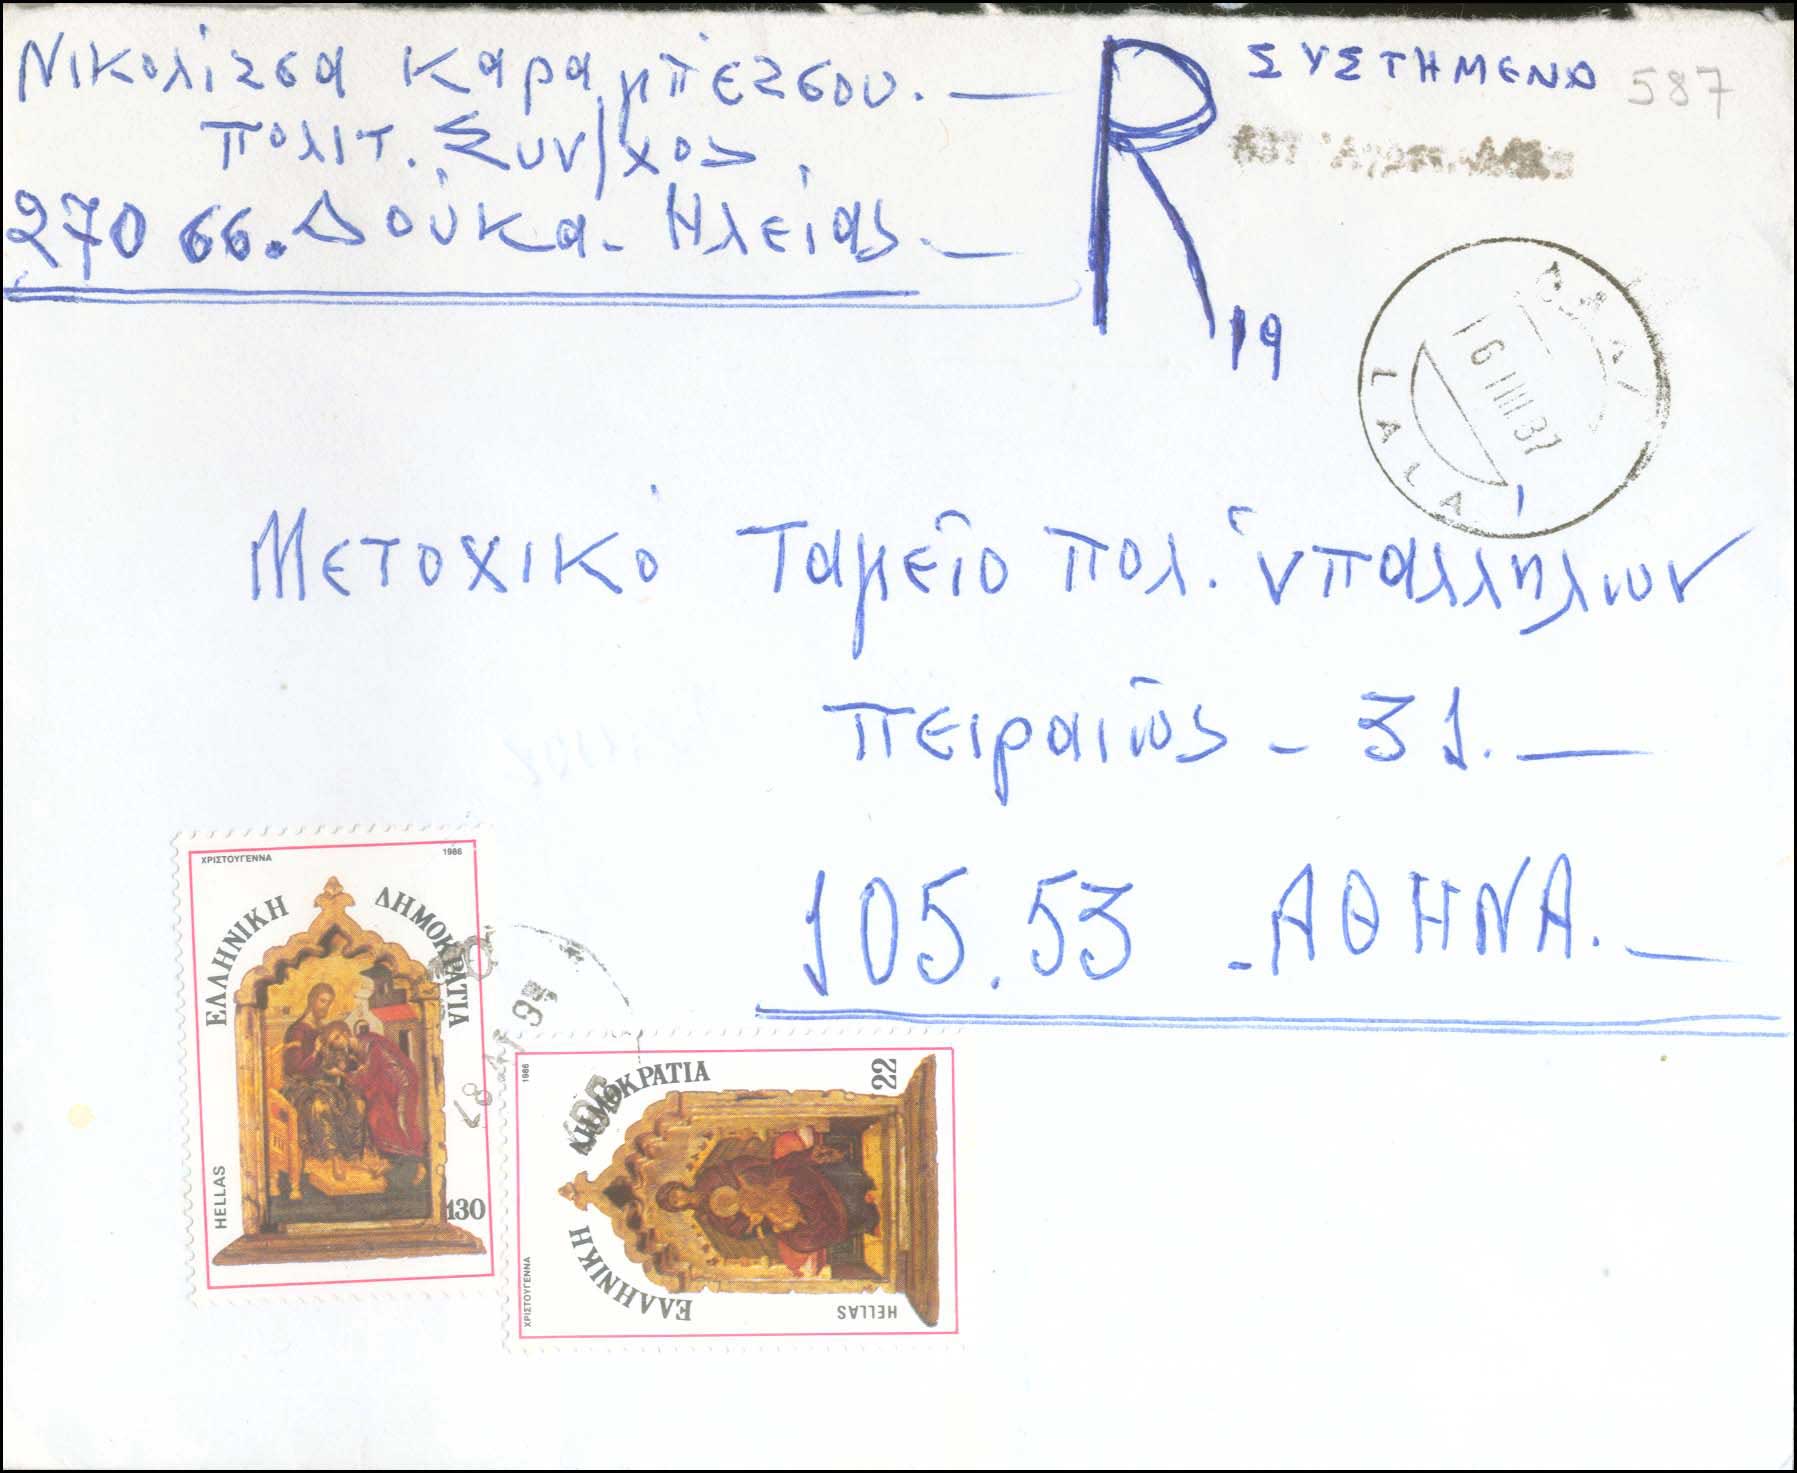 Νικολίτσα Καραμπέτσου.
Πολιτ. Συν/χος
270 66. Δούκα - Ηλείας.
R 19
ΣΥΣΤΗΜΕΝΟ 587
LALA
Μετοχικό Ταμείο Πολ. ὑπαλλήλων
Πειραιῶς - 31.
105.53 - ΑΘΗΝΑ.
ΧΡΙΣΤΟΥΓΕΝΝΑ 1986
ΕΛΛΗΝΙΚΗ ΔΗΜΟΚΡΑΤΙΑ
HELLAS 130
ΧΡΙΣΤΟΥΓΕΝΝΑ 1986
ΕΛΛΗΝΙΚΗ ΔΗΜΟΚΡΑΤΙΑ
HELLAS 22